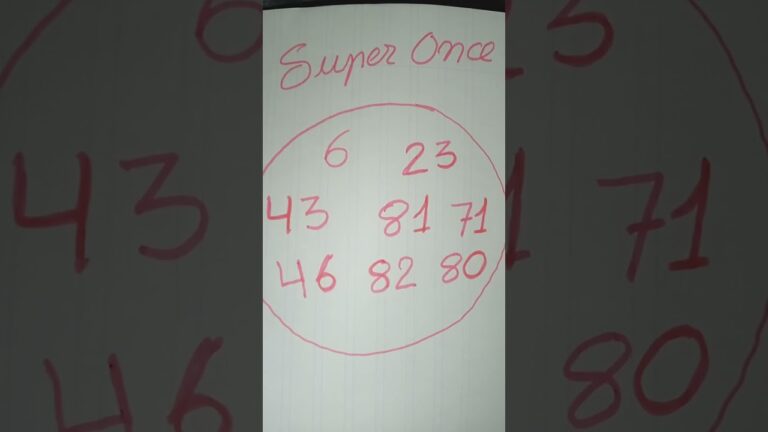 Super Once
6 23
43 81 71
46 82 80